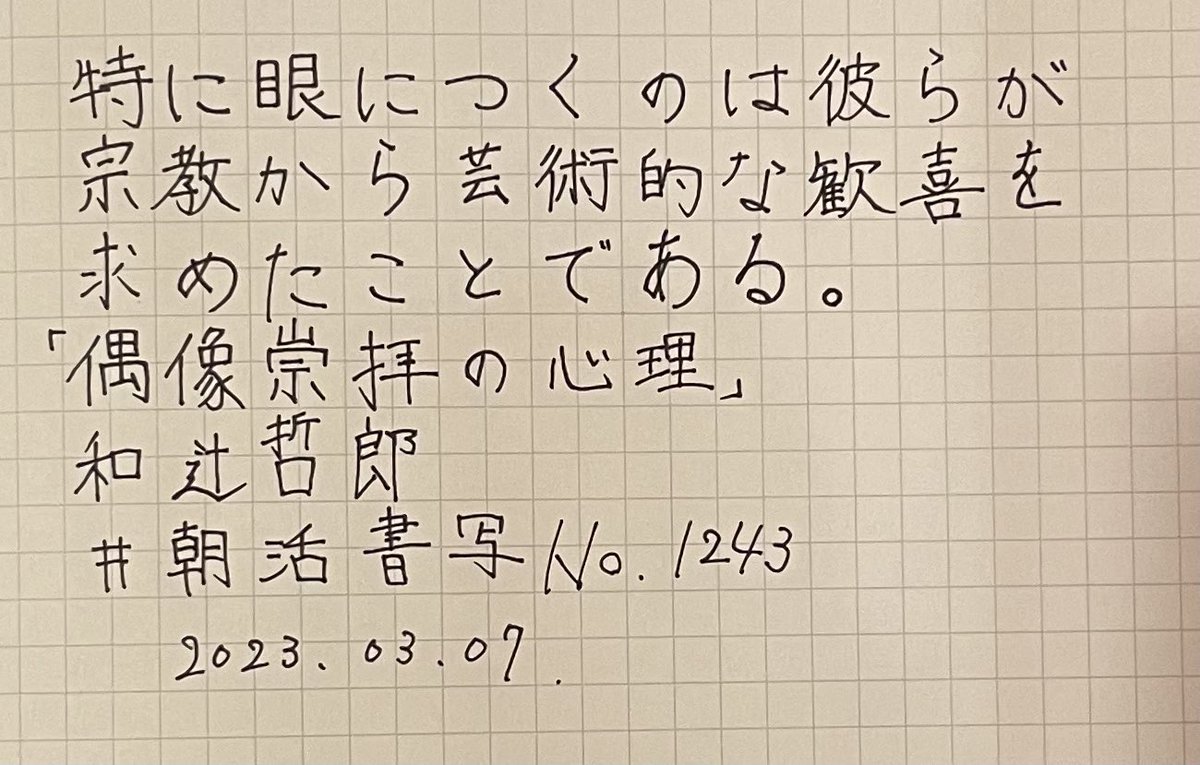 特に眼につくのは彼らが
宗教から芸術的な歓喜を
求めたことである。
「偶像崇拝の心理」
和辻哲郎
#朝活書写No.1243
2023.03.07.